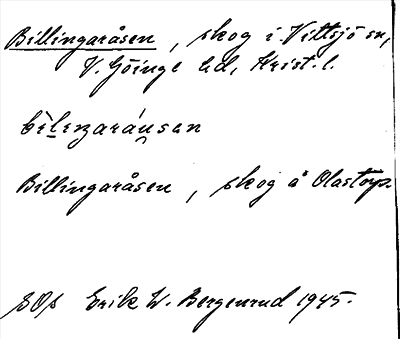 Billingaråsen, skog i Vittsjö sn,
V. Göinge hd, Krist. l.
Billingaråsen, skog å Olastorp.
SOÅ Erik W. Bergenrud 1945.